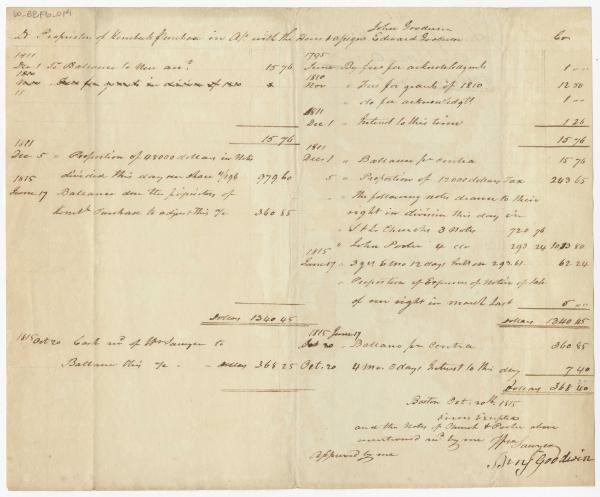 John Goodwin
Dr Proprietors of Kennebeck Purchase in A/c with the Heirs & assigns Edward Goodwin Cr
1811
Dec 1 To Ballance to New acct 15 76
1810
Nov
15 76
1811
Dec 5 " Proportion of 48000 dollars in Notes
divided this day on Share 1/196 979 60
1815
June 17 Ballance due the propietors of
Kenbk Purchase to adjust this a/c 360 85
Dollars 1340 45
1815 Oct 20 Cash recd of Wm Sawyer to
Ballance this a/c Dollars 368 25
1795
June By fees for acknowledgmts 1 " "
1810
Nov " Fees for grants of 1810 12 50
" do for acknowedgt 1 " "
1811
Dec 1 " Interest to this time 1 26
15 76
1811
Dec 1 " Ballance pr contra 15 76
5 " Proportion of 12000 dollars Tax 243 65
" The following notes drawn to their
right in division this day in
" Church's 3 Notes 720 56
" John Porter 4 do 293 24 1013 80
1815
June 17 " 3 yrs 6 mo 12 days Intt on 293.61 62 24
" Proportion of Expenses of Notice of Sale
of our right in march last 5 " "
Dollars 1340 45
1815 June 17
Oct 20 " Ballance pr Contra 360 85
Oct. 20 4 Mo. 3 days Interest to this day 7 40
Dollars 368 25
Boston Oct. 20th 1815
Errors Excepted
and the Notes of Church & Porter above
mentioned recd by me Wm Sawyer
Approved by me Benj Goodwin